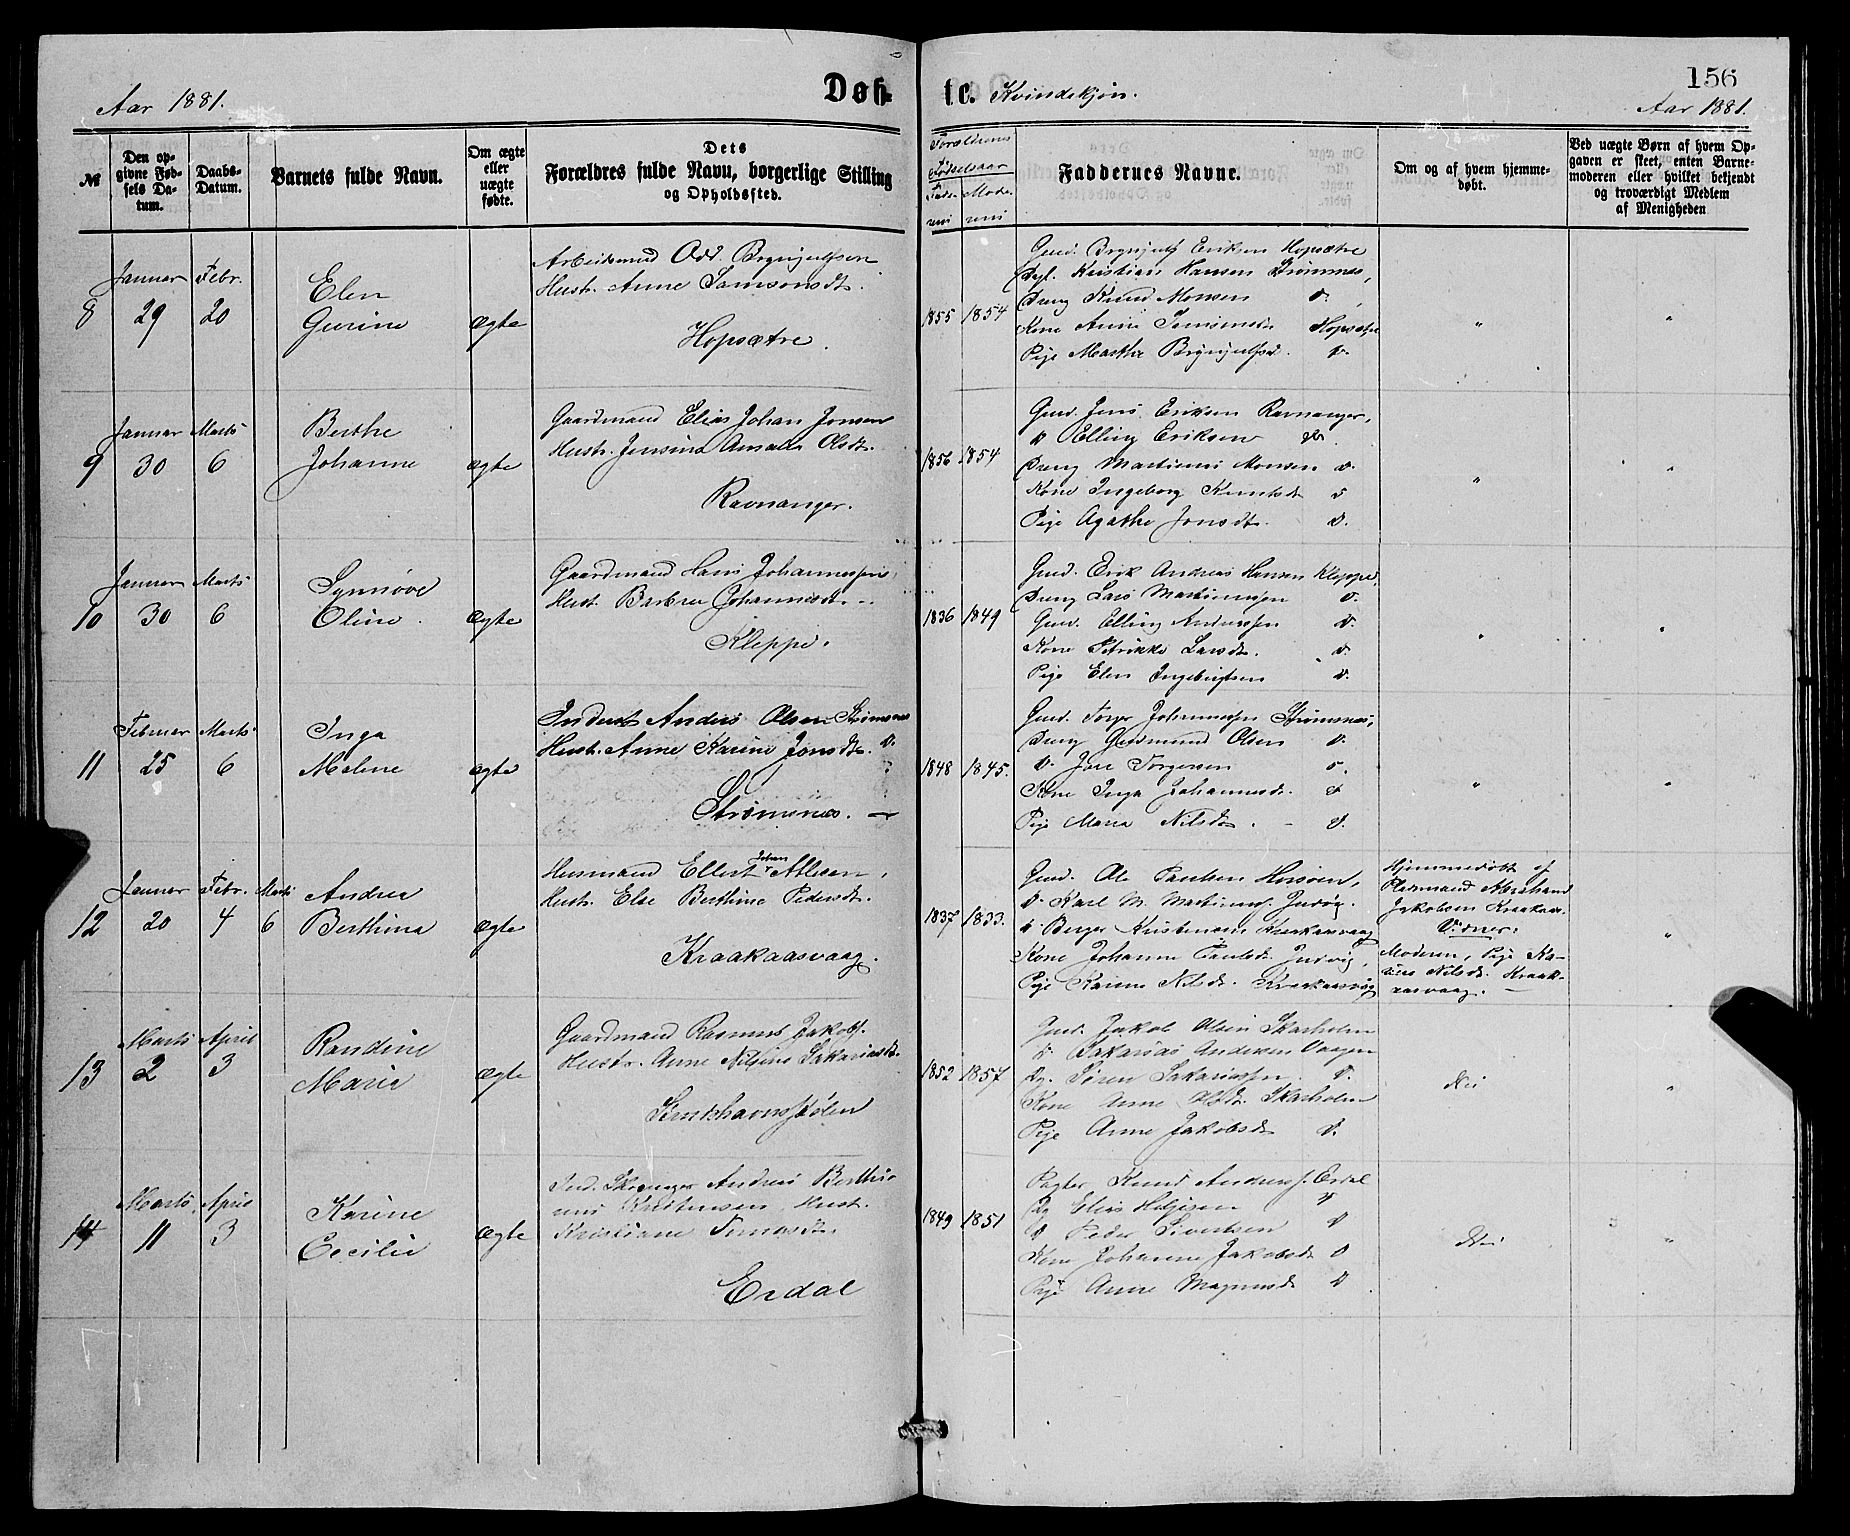 Aar 1881.
Døb-
te. Kvindekjøn.
156
Aar 1881.
№
Den op-
givne Fød-
sels Da-
tum.
Daabs-
Datum.
Barnets fulde Navn.
Om ægte
eller
uægte
fødte.
Dets
Forældres fulde Navn, borgerlige Stilling
og Opholdssted.
Forældrenes
Fødselsaar
Fade-
rens
Mode-
rens
Faddernes Navne.
Om og af hvem hjemme-
døbt.
Ved uægte Børn af hvem Op-
gaven er skeet, enten Barne-
moderen eller hvilket bekjendt
og troværdigt Medlem
af Menigheden
8
Januar
29
Febr.
20
Elen
Gurine
ægte
Arbeidsmand Odd. Brynjulfsen
Hustr. Anne Samsonsdt.
Hopsætre.
1855
1854
Gmd. Brynjulf Eriksen Hopsætre
Kristian Hansen Strømsnes,
Dreng Knud Monsen D.
Kone Anne Hopsætre
Pige Marthe Brynjulfsd. D.
"
"
9
Januar
30
Marts
6
Berthe
Johanne
ægte
Gaardmand Elias Johan Jonsen
Hustr. Jensine Amalia Olsdt.
Ravnanger.
1856
1854
Gmd. Jens Eriksen Ravnanger,
D Elling Eriksen D.
Dreng Martinus Monsen D.
Kone Ingeborg Knutsdt D
Pige Agathe Jonsdt. D.
"
"
10
Januar
30
Marts
6
Synnøve
Oline.
ægte
Gaardmand Hans Johannessen
Hust. Barbra Johannesdt.
Kleppe.
1836
1849
Gmd. Erik Andreas Hansen Kleppe,
Dreng Lars Martinussen D.
Gmd. Elling Anderssen D.
Kone Petrikke Larsdt. D.
Pige Elen Ingebrigtsen D.
"
"
11
Februar
25
Marts
6
Inga
Malene
ægte
Inderst Anders Olsen Strømsnes
Hustr. Anne Karine Jonsdt. D.
Strømsnes.
1848
1845.
Gmd. Torger Johannessen Strømsnes,
Dreng Gudmund Olsen D.
D. Jon Torgersen D.
Kone Inga Johannesdt. D
Pige Maria Nilsdt. D.
"
"
12
Januar
20
Febr.
4
Marts
6
Andrea
Berthina
ægte
Johan
Husmand Ellert Atlesen,
Hustr. Else Berthine Pedersdt.
Kraakaasvaag.
1837
1833.
Gmd. Ole Paulsen
D. Karl M. Martinuss.
D Berger Kristensen Kraakaasvaag
Kone Johanne Paulsdt.
Pige Karine Nilsdt. Kraakaasvaag
Hjemmedøbt af
Pladsmand Abraham
Jakobsen Kraakaas-
Vidner:
Moderen, Pige Ka-
rine Nilsdt. Kraak-
aasvaag.
"
13
Marts
2
April
3
Randine
Marie
ægte
Gaardmand Rasmus Jakobs.
Hustr. Anne Nilsine Sakariasdt.
1852
1857
Gmd. Jakob Olsen Skarholm
D. Sakarias Andersen Vaagen
Dg. Søren Sakariassen D.
Kone Anne Olsdt. Skarholm
Pige Anne Jakobsdt D.
Nei
"
14
Marts
11
April
3
Karine
Cecilie
ægte
Ind. Andreas Berthi-
nus Kristensen Hust.
Kristiane
Erdal
1849
1851
Pagter Knud Anderss. Erdal
Dg Elias Helgesen D
D Peder Sivertsen D
Kone Johanne Jakobsdt D
Pige Anne Magnusdt D
Nei
"